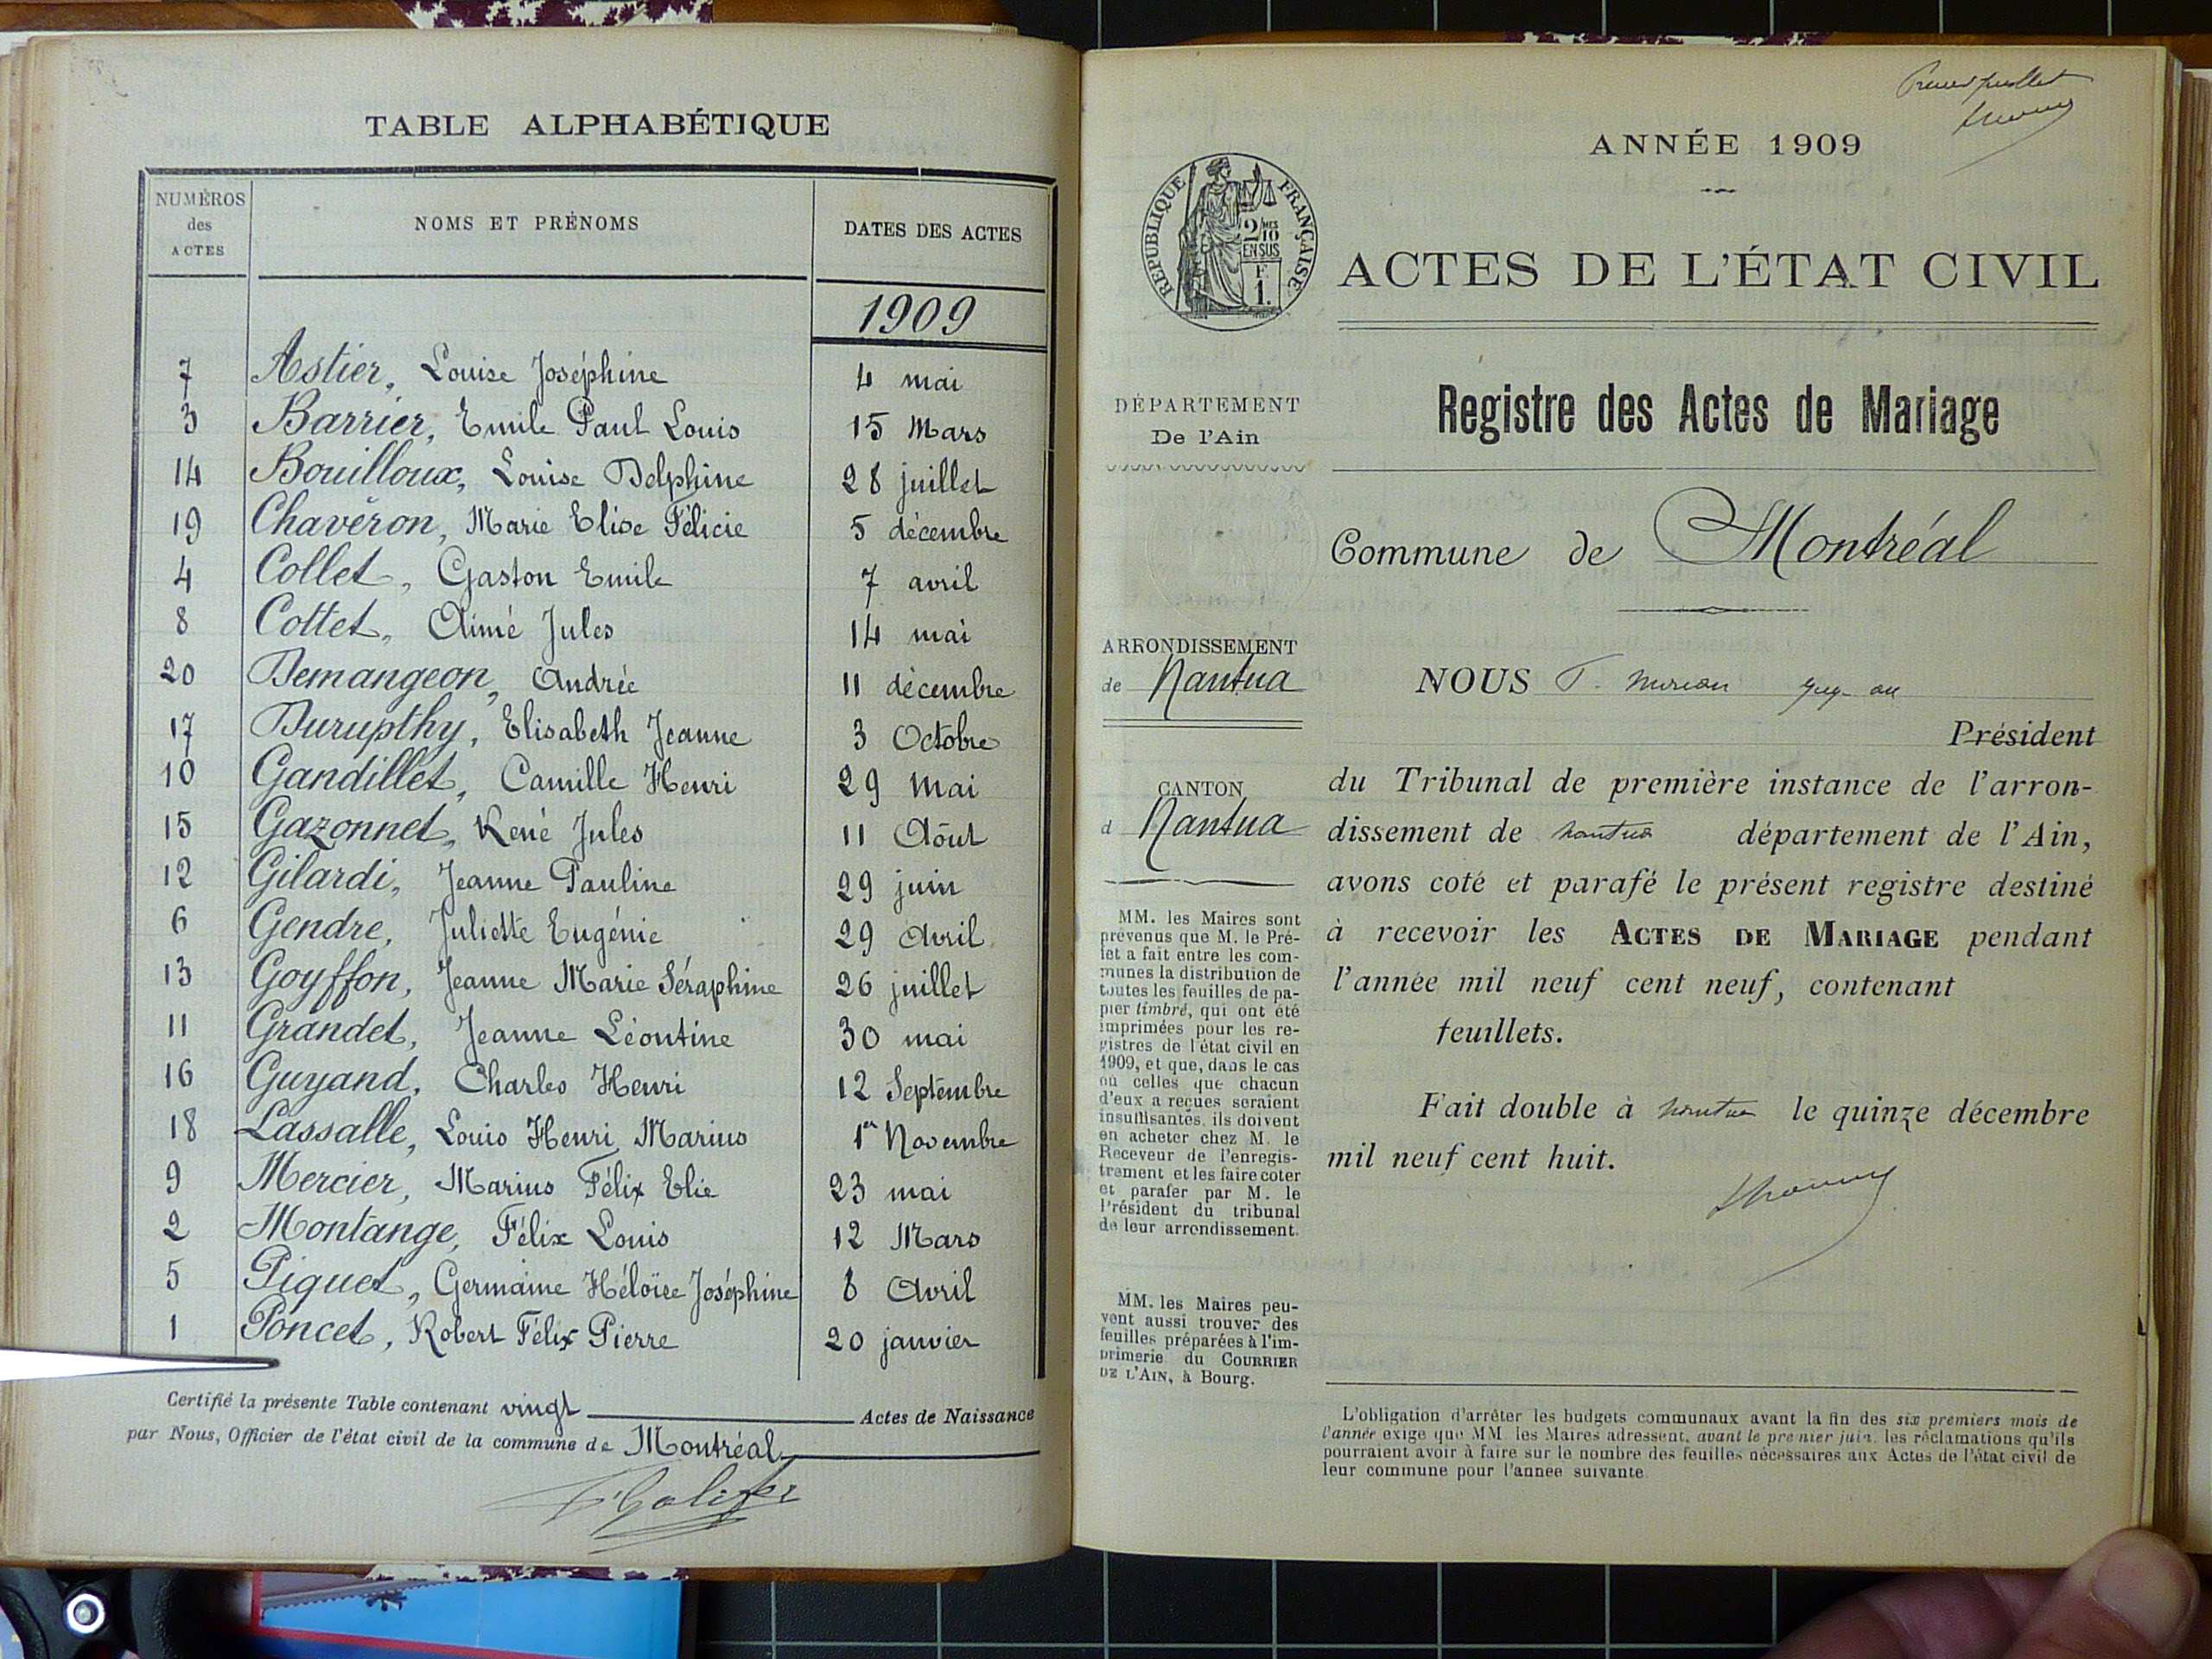 TABLE ALPHABÉTIQUE
NUMÉROS des ACTES
NOMS ET PRÉNOMS
DATES DES ACTES
1909
7 Astier, Louise Joséphine 4 mai
3 Barrier, Emile Paul Louis 15 Mars
14 Bouilloux, Louise Delphine 28 juillet
19 Chavéron, Marie Elise Félicie 5 décembre
4 Collet, Gaston Emile 7 avril
8 Cottet, Aimé Jules 14 mai
20 Demangeon, Andrée 11 décembre
17 Durupthy, Elisabeth Jeanne 3 Octobre
10 Gandillet, Camille Henri 29 Mai
15 Gazonnet, René Jules 11 Aôut
12 Gilardi, Jeanne Pauline 29 juin
6 Gendre, Juliette Eugénie 29 Avril
13 Goyffon, Jeanne Marie Séraphine 26 juillet
11 Grandet, Jeanne Léontine 30 mai
16 Guyand, Charles Henri 12 Septembre
18 Lassalle, Louis Henri Marius 1er Novembre
9 Mercier, Marius Félix Elie 23 mai
2 Montange, Félix Louis 12 Mars
5 Piquet, Germaine Héloïse Joséphine 8 Avril
1 Poncet, Robert Félix Pierre 20 janvier
Certifié la présente Table contenant vingt Actes de Naissance
par Nous, Officier de l'état civil de la commune de Montréal
ANNÉE 1909
RÉPUBLIQUE FRANÇAISE
2/10 MES
EN SUS
F.
1.
ACTES DE L'ÉTAT CIVIL
DÉPARTEMENT
De l'Ain
Registre des Actes de Mariage
Commune de Montréal
ARRONDISSEMENT
de Nantua
CANTON
d Nantua
MM. les Maires sont
prévenus que M. le Pré-
fet a fait entre les com-
munes la distribution de
toutes les feuilles de pa-
pier timbré, qui ont été
imprimées pour les re-
gistres de l'état civil en
1909, et que, dans le cas
où celles que chacun
d'eux a reçues seraient
insuffisantes, ils doivent
en acheter chez M. le
Receveur de l'enregis-
trement et les faire coter
et parafer par M. le
Président du tribunal
de leur arrondissement.
MM. les Maires peu-
vent aussi trouver des
feuilles préparées à l'im-
primerie du COURRIER
DE L'AIN, à Bourg.
NOUS
Président
du Tribunal de première instance de l'arron-
dissement de Nantua département de l'Ain,
avons coté et parafé le présent registre destiné
à recevoir les ACTES DE MARIAGE pendant
l'année mil neuf cent neuf, contenant
feuillets.
Fait double à Nantua le quinze décembre
mil neuf cent huit.
L'obligation d'arrêter les budgets communaux avant la fin des six premiers mois de
l'année exige que MM. les Maires adressent, avant le premier juin, les réclamations qu'ils
pourraient avoir à faire sur le nombre des feuilles nécessaires aux Actes de l'état civil de
leur commune pour l'année suivante.